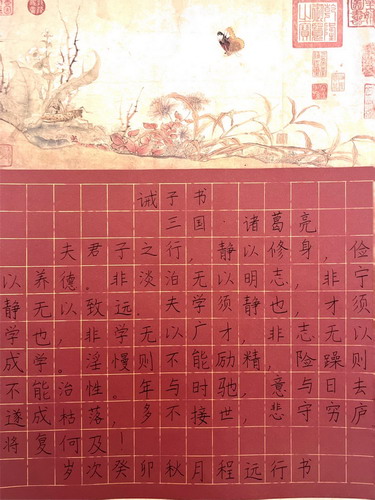 诫子书
三国·诸葛亮
夫君子之行，静以修身，俭
以养德。非淡泊无以明志，非宁
静无以致远。夫学须静也，才须
学也，非学无以广才，非志无以
成学。淫慢则不能励精，险躁则
不能治性。年与时驰，意与日去
遂成枯落，多不接世，悲守穷庐
将复何及！
岁次癸卯秋月程远行书